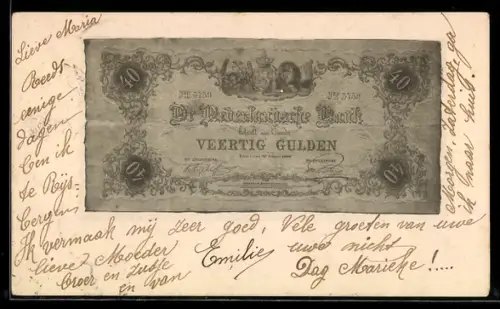 Lieve Maria
Reeds
eenige
dagen
ben ik
te Rijs-
bergen
Ik vermaak mij zeer goed, Vele groeten van uwe
lieve Moeder
broer en zusje
en van
Emilie
uwe nicht
Dag Marieke!.....
Morgen, Zaterdag, ga
ik naar huis!
40
40
No 5750
No 5750
De Nederlandsche Bank
VEERTIG GULDEN
40
40